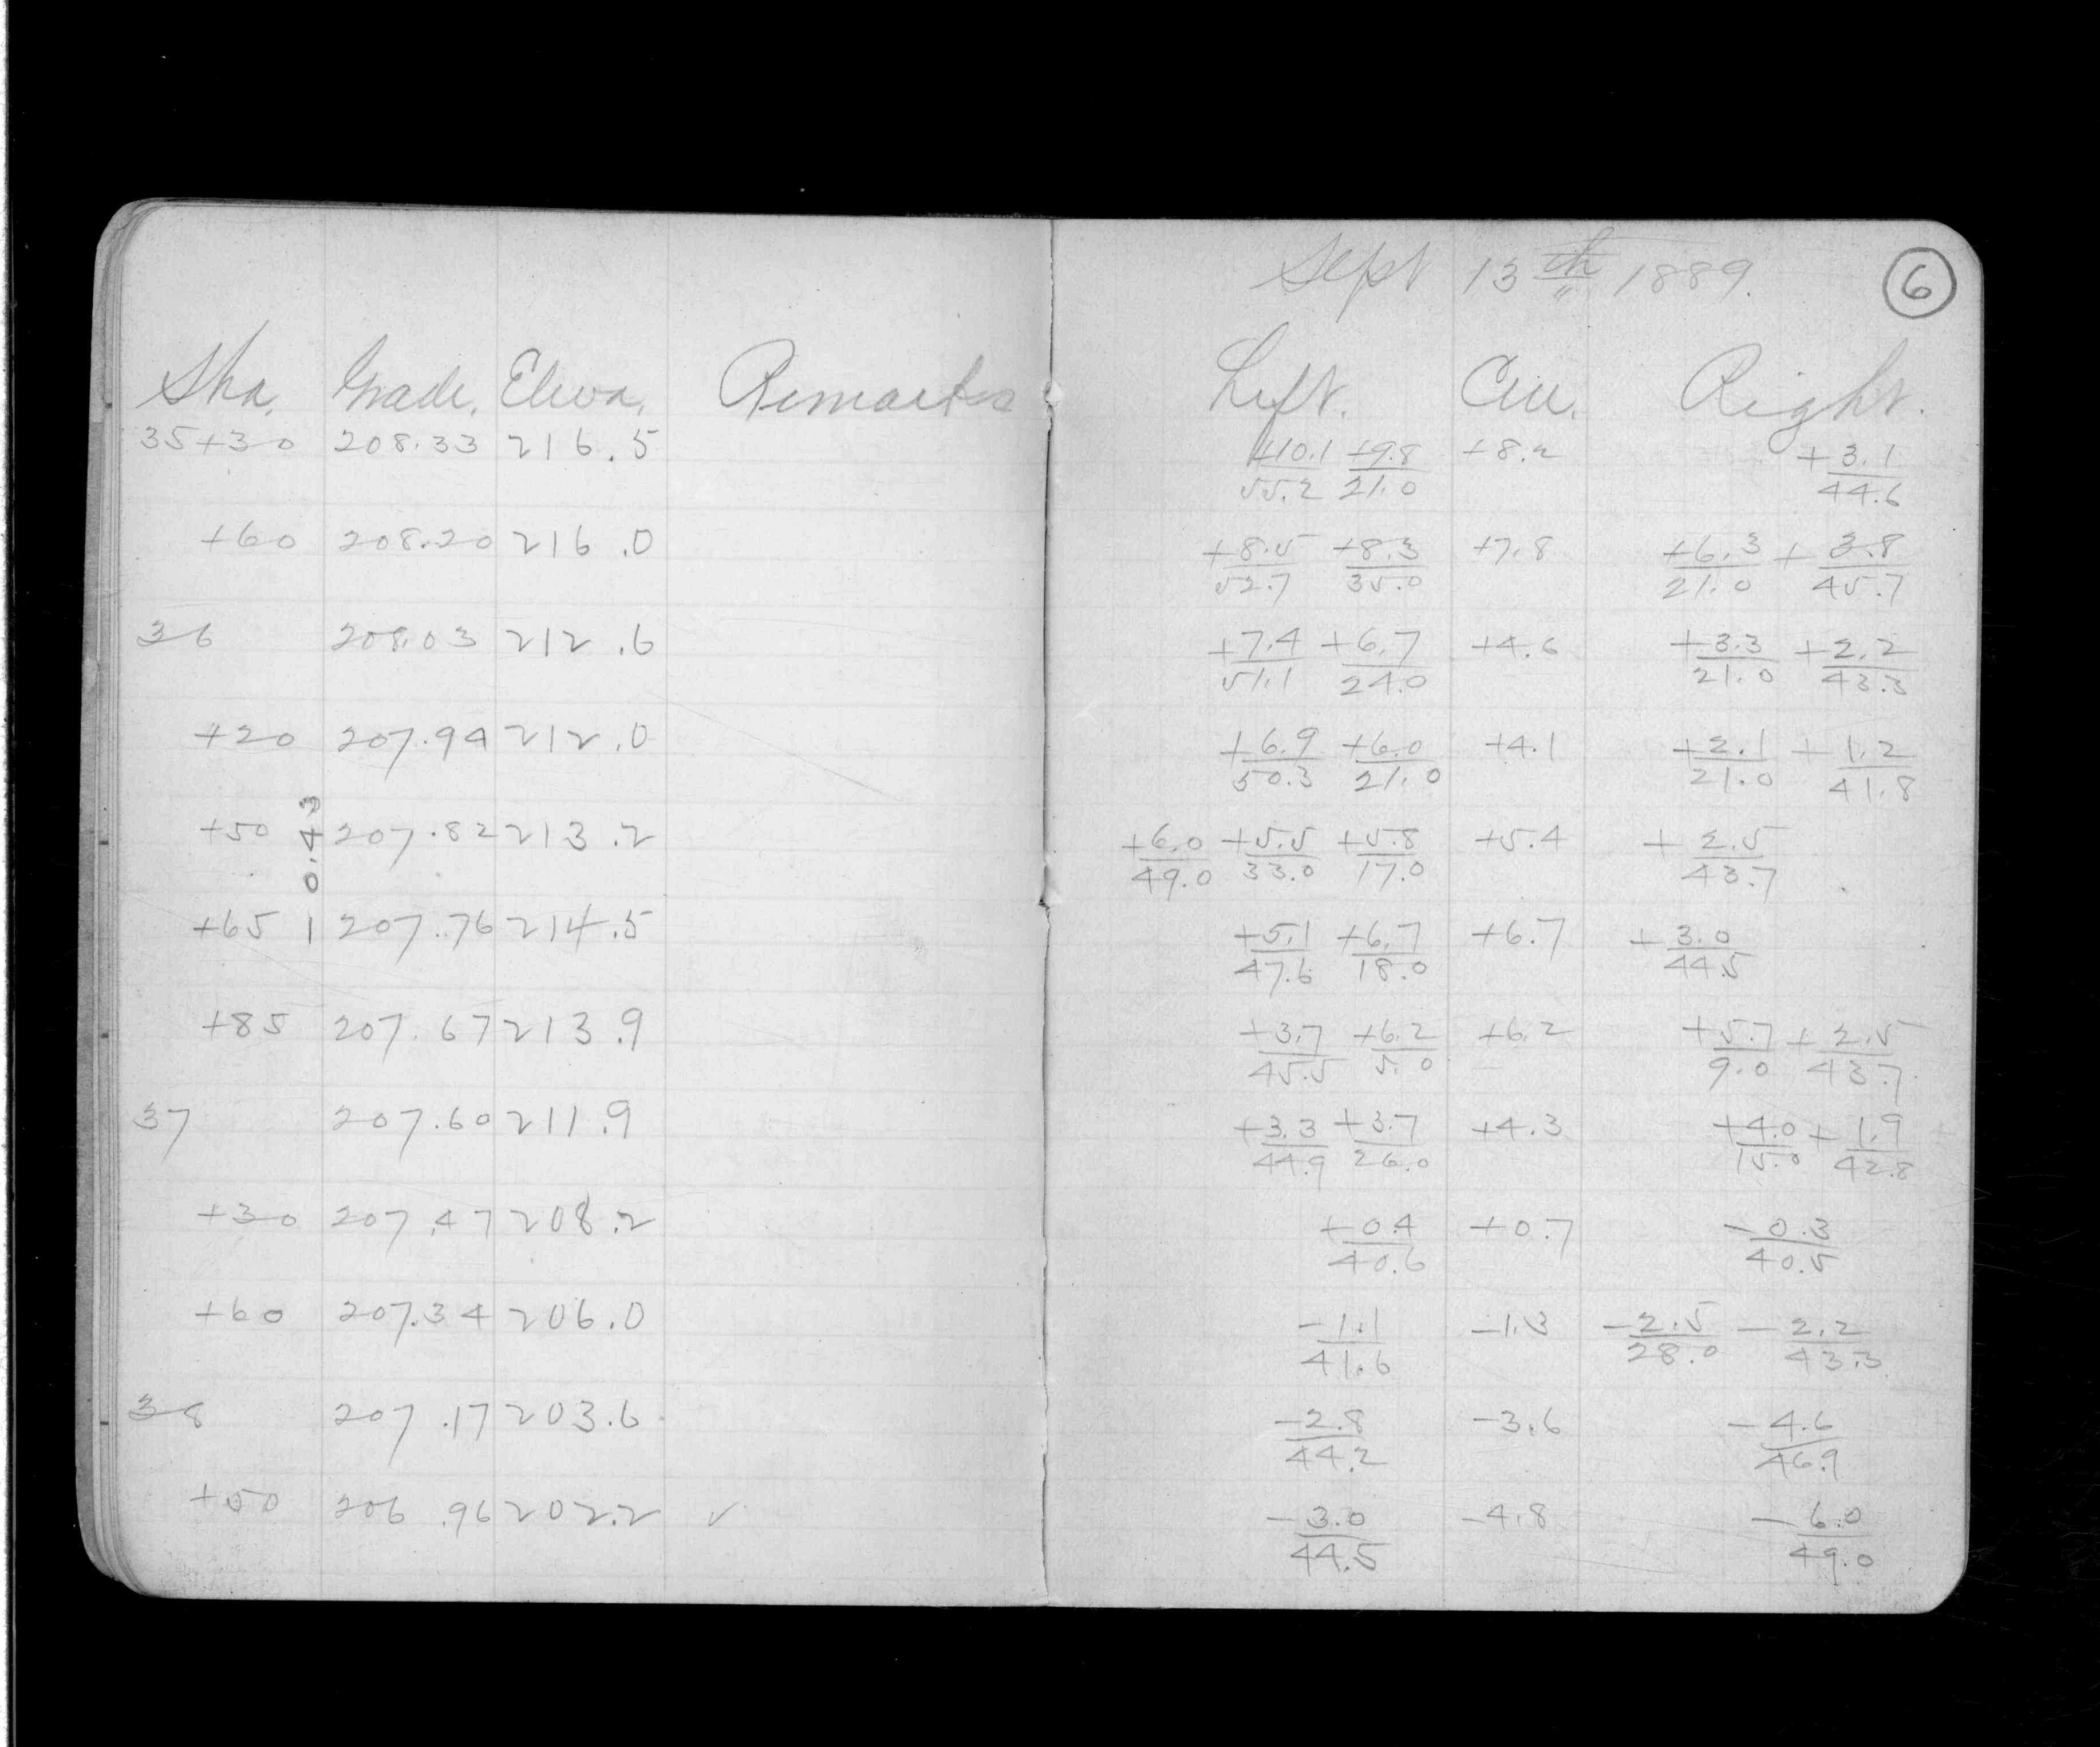 Sept 13th 1889. 6
Sta. Grade. Eleva. Remarks Left. Cen. Right.
35+30 208.33 216.5 +10.1/55.2 +9.8/21.0 +8.2 +3.1/44.6
+60 208.20 216.0 +8.5/52.7 +8.3/35.0 +7.8 +6.3/21.0 +3.8/45.7
36 208.03 212.6 +7.4/51.1 +6.7/24.0 +4.6 +3.3/21.0 +2.2/43.3
+20 207.94 212.0 +6.9/50.3 +6.0/21.0 +4.1 +2.1/21.0 +1.2/41.8
+50 207.82 213.2 +6.0/49.0 +5.5/33.0 +5.8/17.0 +5.4 +2.5/43.7
0.43
+65 207.76 214.5 +5.1/47.6 +6.7/18.0 +6.7 +3.0/44.5
+85 207.67 213.9 +3.7/45.5 +6.2/5.0 +6.2 +5.7/9.0 +2.5/43.7
37 207.60 211.9 +3.3/44.9 +3.7/26.0 +4.3 +4.0/15.0 +1.9/42.8
+30 207.47 208.2 +0.4/40.6 +0.7 -0.3/40.5
+60 207.34 206.0 -1.1/41.6 -1.3 -2.5/28.0 -2.2/43.3
38 207.17 203.6 -2.8/44.2 -3.6 -4.6/46.9
+50 206.96 202.2 ✓ -3.0/44.5 -4.8 -6.0/49.0